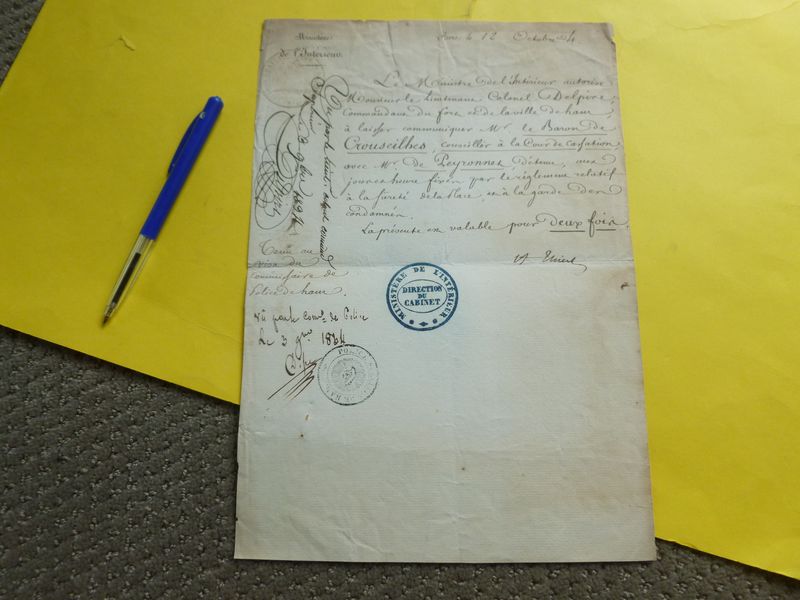 Ministère
de l'Intérieur.
Paris le 12 Octobre 1834.
Le Ministre de l'Intérieur autorise
Monsieur le Lieutenant Colonel Delpire,
Commandant du fort et de la ville de ham
à laisser communiquer Mr. le Baron de
Crouseilhes, conseiller à la Cour de Cassation
avec Mr. de Peyronnet détenu, aux
jours et heures fixés par le règlement relatif
à la sûreté de la place, et à la garde des
condamnés.
La présente est valable pour deux fois.
A Thiers
Vu par le
9bre 1834
visa du
Commissaire de
Police de ham.
Vu par le Comre. de Police
Le 3 9bre 1834
MINISTÈRE DE L'INTÉRIEUR
DIRECTION
DU
CABINET
POLICE